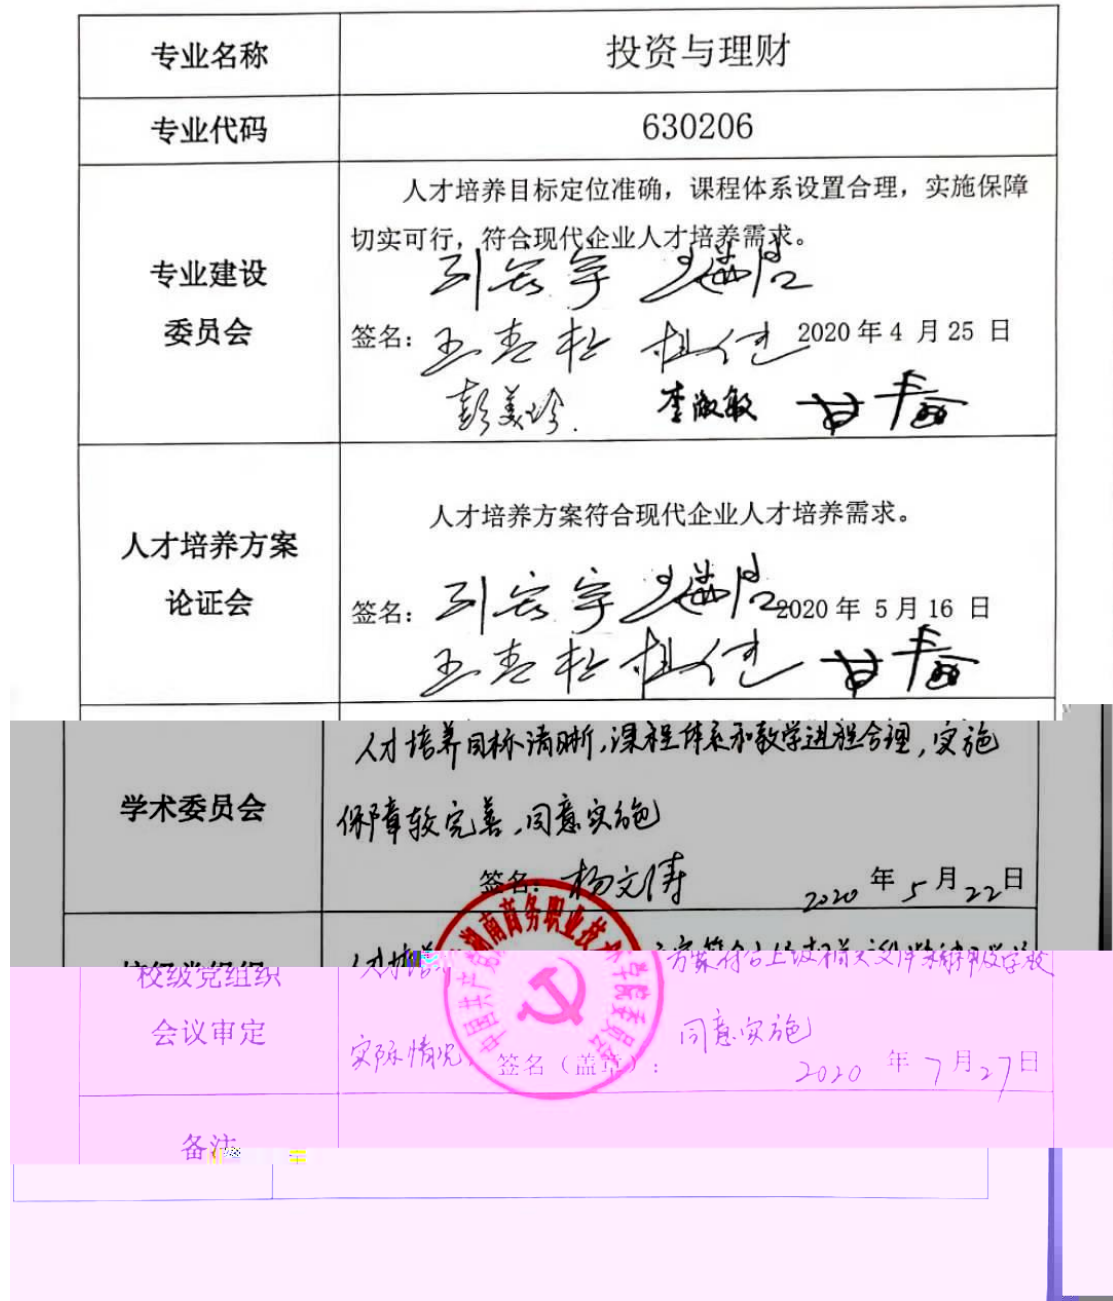 专业名称
投资与理财
专业代码
630206
专业建设
委员会
人才培养目标定位准确，课程体系设置合理，实施保障
切实可行，符合现代企业人才培养需求。
签名：
2020 年 4 月 25 日
彭美玲.
李淑敏
人才培养方案
论证会
人才培养方案符合现代企业人才培养需求。
签名：
2020 年 5 月 16 日
学术委员会
人才培养目标清晰，课程体系和教学进程合理，实施
保障较完善，同意实施
签名：杨文涛
2020 年 5 月 22 日
校级党组织
会议审定
人才培养
方案符合上级相关文件精神及学校
实际情况，
同意实施
签名（盖章）：
2020 年 7 月 27 日
中国共产党湖南商务职业技术学院委员会
备注